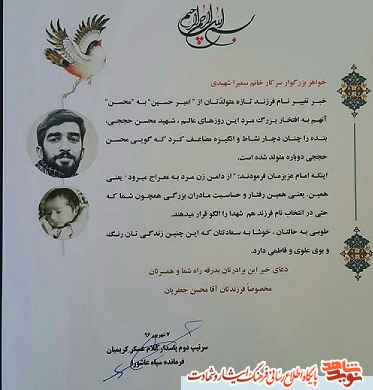 بسم الله الرحمن الرحیم
خواهر بزرگوار سرکار خانم سمیرا شهیدی
خبر تغییر نام فرزند تازه متولدتان از "امیر حسین" به "محسن"
آنهم به افتخار بزرگ مرد این روزهای عالم، شهید محسن حججی،
بنده را چنان دچار نشاط و انگیزه مضاعف کرد که گویی محسن
حججی دوباره متولد شده است.
اینکه امام عزیزمان فرمودند: "از دامن زن مرد به معراج میرود" یعنی
همین. یعنی همین رفتار و حساسیت مادران بزرگی همچون شما که
حتی در انتخاب نام فرزند هم شهدا را الگو قرار میدهند.
طوبی به حالتان، خوشا به سعادتتان که این چنین زندگی تان رنگ
و بوی علوی و فاطمی دارد.
دعای خیر این برادرتان بدرقه راه شما و همسرتان
مخصوصاً فرزندتان آقا محسن جعفریان
۷ شهریور ۹۶
سرتیپ دوم پاسدار غلام عسکر کریمیان
فرمانده سپاه عاشورا
نوید شاهد
پایگاه اطلاع رسانی فرهنگ ایثار و شهادت